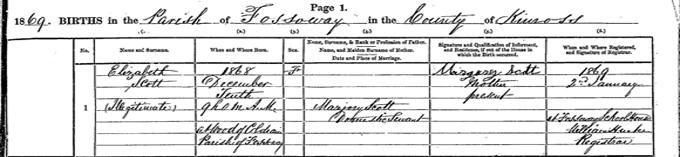 Page 1.
1869. BIRTHS in the Parish of Fossoway in the County of Kinross
No. Name and Surname. When and Where Born. Sex. Name, Surname, & Rank or Profession of Father. Name, and Maiden Surname of Mother. Date and Place of Marriage. Signature and Qualification of Informant, and Residence, if out of the House in which the Birth occurred. When and Where Registered, and Signature of Registrar.
Elizabeth 1868 F Margery Scott 1869
Scott December Mother 2nd January
Tenth present
1 (Illegitimate) 9h. 0m. A.M. Marjory Scott
Domestic Servant at Fossoway School House
at Wood of William
Parish of Fossoway Registrar